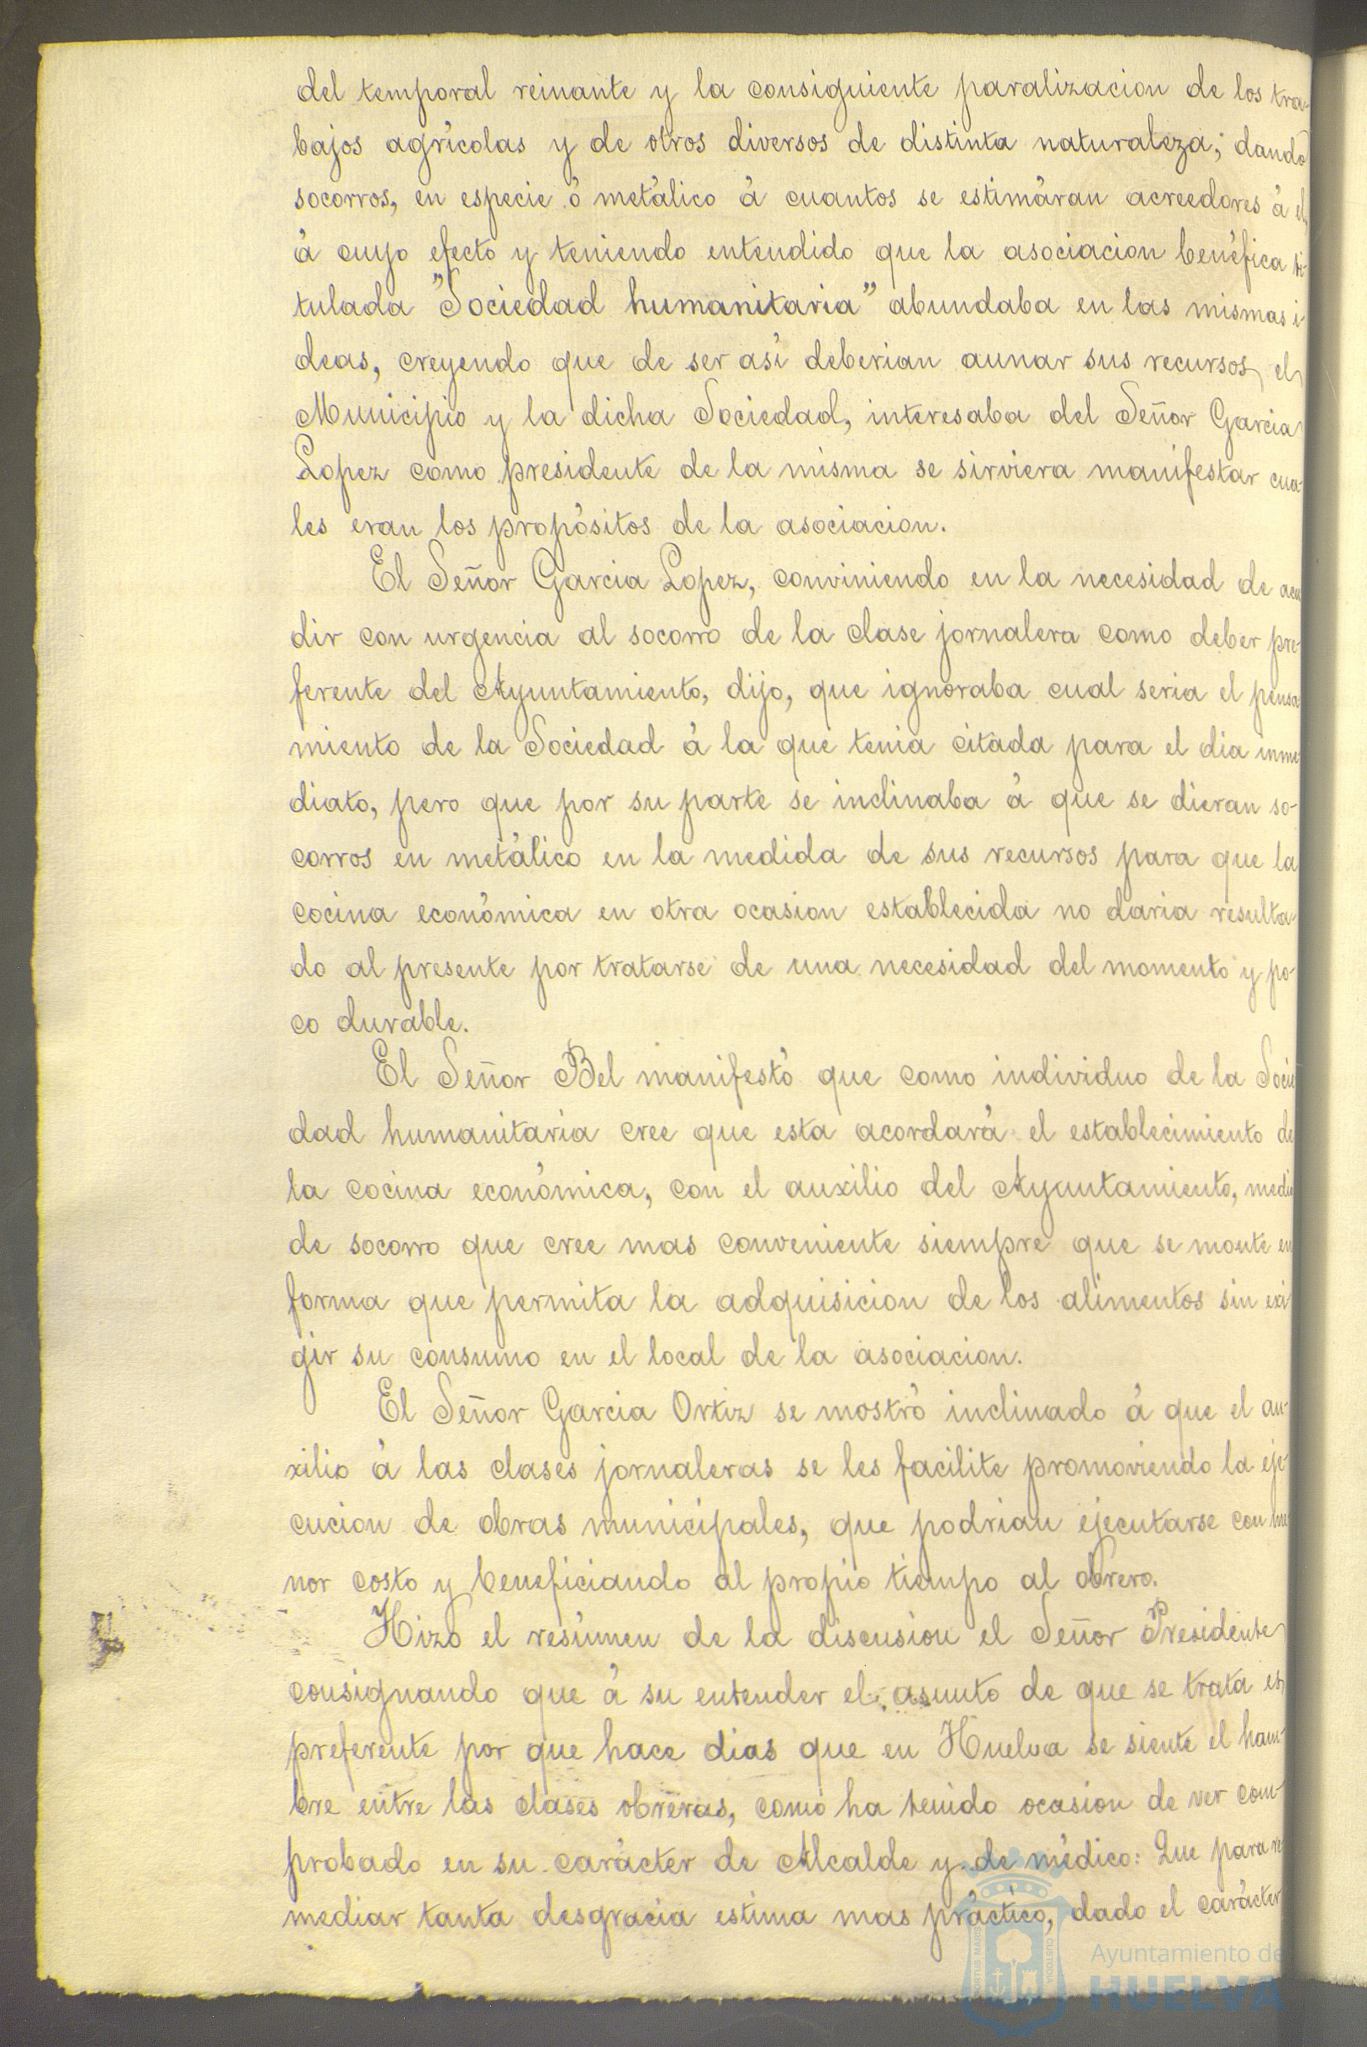 del temporal reinante y la consiguiente paralizacion de los tra-
bajos agrícolas y de otros diversos de distinta naturaleza; dando
socorros, en especie ó metálico á cuantos se estimáran acreedores á el,
á cuyo efecto y teniendo entendido que la asociacion benéfica ti-
tulada "Sociedad humanitaria" abundaba en las mismas i-
deas, creyendo que de ser así deberian aunar sus recursos el
Municipio y la dicha Sociedad, interesaba del Señor Garcia
Lopez como presidente de la misma se sirviera manifestar cua-
les eran los propósitos de la asociacion.
El Señor Garcia Lopez, conviniendo en la necesidad de acu
dir con urgencia al socorro de la clase jornalera como deber pre-
ferente del Ayuntamiento, dijo, que ignoraba cual seria el pensa
miento de la Sociedad á la que tenia citada para el dia inme
diato, pero que por su parte se inclinaba á que se dieran so-
corros en metálico en la medida de sus recursos para que la
cocina económica en otra ocasion establecida no daria resulta-
do al presente por tratarse de una necesidad del momento y po-
co durable.
El Señor Bel manifestó que como individuo de la Socie
dad humanitaria cree que esta acordará el establecimiento de
la cocina económica, con el auxilio del Ayuntamiento, medio
de socorro que cree mas conveniente siempre que se monte en
forma que permita la adquisicion de los alimentos sin exi
gir su consumo en el local de la asociacion.
El Señor Garcia Ortiz se mostró inclinado á que el au-
xilio á las clases jornaleras se les facilite promoviendo la eje-
cucion de obras municipales, que podrian ejecutarse con me
nor costo y beneficiando al propio tiempo al obrero.
Hizo el resúmen de la discusion el Señor Presidente
consignando que á su entender el asunto de que se trata es
preferente por que hace dias que en Huelva se siente el ham-
bre entre las clases obreras, como ha tenido ocasion de ver com-
probado en su carácter de Alcalde y de médico: Que para re
mediar tanta desgracia estima mas práctico, dado el carácter
Ayuntamiento de
HUELVA